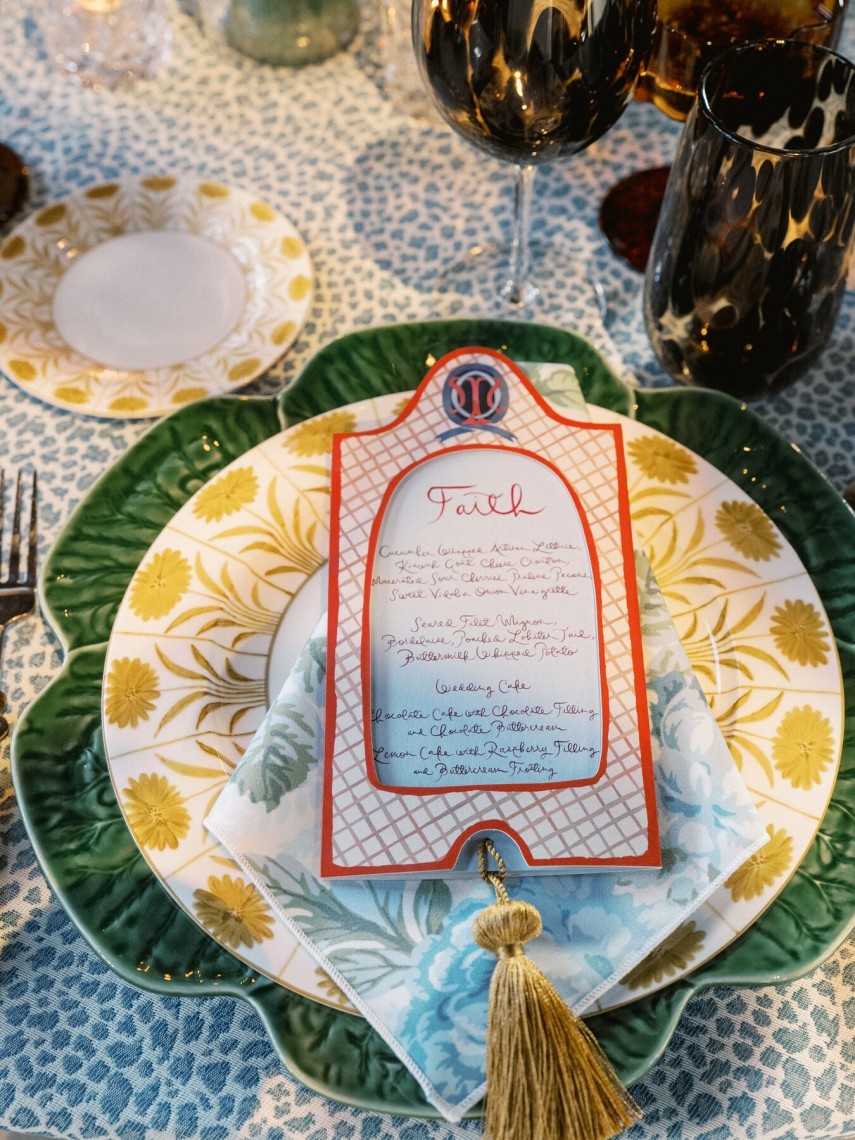 Faith
Cucumber Wrapped Artisan Lettuce,
Goat Cheese Crouton,
Macerated Sour Cherries Praline Pecans
Sweet Vidalia Onion Vinaigrette
Seared Filet Mignon,
Bordelaise, Poached Lobster Tail,
Buttermilk Whipped Potato
Wedding Cake
Chocolate Cake with Chocolate Filling
and Chocolate Buttercream
Lemon Cake with Raspberry Filling
and Buttercream Frosting